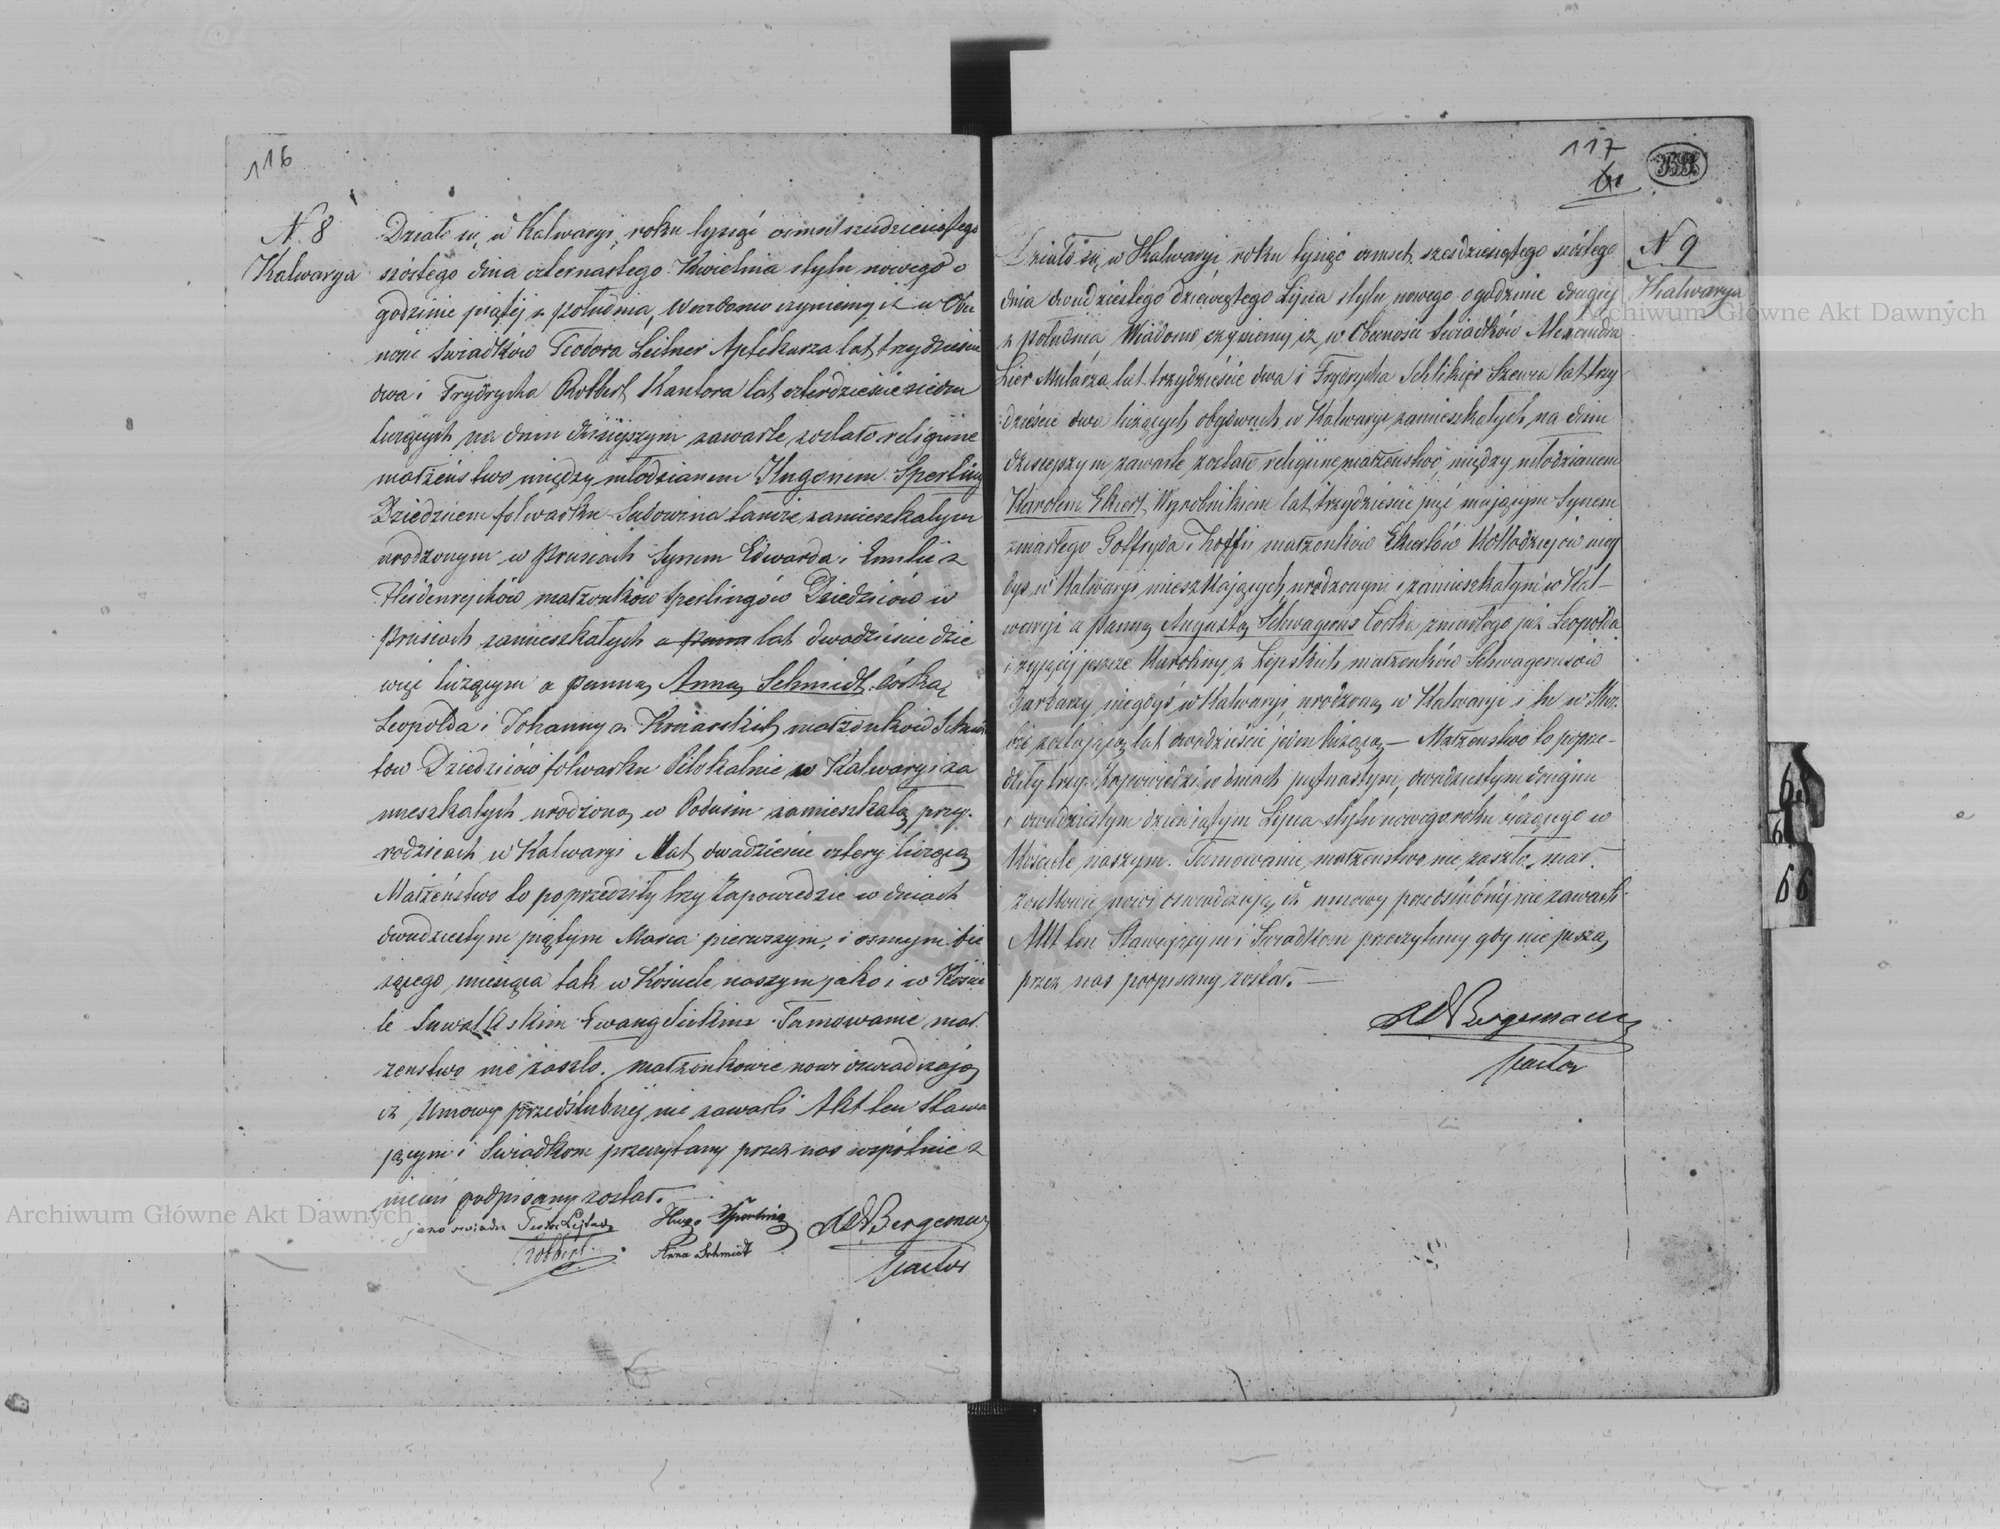 116
N. 8
Kalwarya
Działo się w Kalwaryi, roku tysiąć ośmset sześdziesiątego
szóstego dnia czternastego Kwietnia stylu nowego o
godzinie piątéj z południa, Wiadomo czyniemy iż w Obe
ności Swiadków Teodora Leitner Aptekarza lat trzydzieście
dwa i Frydrycha Robbert Kantora lat czterdzieście siedm
liczących na dniu dzisiejszym zawarte zostało religijne
małżeństwo między młodzianem Hugonem Sperling
Dziedzicem folwarku Sadowina tamże zamieszkałym
urodzonym w Prusiach Synem Edwarda i Emilii z
Heidenrejchów małżonków Sperlingów Dziedziców w
Prusiach zamieszkałych a panną lat dwadzieście dzie
więć liczącym a panną Anną Schmidt córką
Leopolda i Johanny z małżonków Schmid
tow Dziedziców folwarku Pilokalnie w Kalwaryi za
mieszkałych urodzoną w zamieszkałą przy
rodzicach w Kalwaryi lat dwadzieście cztery liczącą
Małżeństwo to poprzedziły trzy Zapowiedzie w dniach
dwudziestym piątym Marca pierwszym, i osmym bie
żącego miesiąca tak w Kościele naszym jako i w Kościé
le Suwalkskim Ewangelickim Tamowanie mał
żeństwo nie zaszło. małżonkowie nowi oswiadczają
iż Umowy przedślubnéj nie zawarli Akt ten Stawa
jącym i Swiadkom przeczytany przez nas wspólnie z
niemi podpisany został.
jako swiadek Teodor Lejtner Hugo Sperling
Robbert. Anna Schmidt
Bergemann
Pastor
117
N 9
Kalwarya
Działo się w Kalwaryi, roku tysiąć ośmset sześdziesiątego szóstego
dnia dwudziestego dziewiątego Lipca stylu nowego o godzinie drugiej
z południa Wiadomo czyniemy iż w Obecności Swiadków Alexandra
Lier Mularza lat trzydzieście dwa i Frydrycha Schlikier Szewca lat trzy
dzieście dwa liczących obydwóch w Kalwaryi zamieszkałych, na dniu
dzisiejszym zawarte zostało religijne małżeństwo między młodzianem
Karolem Ekert Wyrobnikiem lat trzydzieście pięć mającym Synem
zmarłego Gotfryda i Zoffii małżonków Ekertów Kołłodziejów nieg
dyś w Kalwaryi mieszkających urodzonym i zamieszkałym w Kal-
waryi a panną Augustą Schwagerus Corką zmarłego już Leopolda
i żyjącéj jeszcze Karoliny z Lipskich małżonków Schwagerusów
niegdyś w Kalwaryi, urodzoną w Kalwaryi i tu w
zostającą lat dwadzieście jeden liczącą — Małżeństwo to poprze-
dziły trzy Zapowiedzi w dniach piętnastym, dwudziestym drugim
i dwudziestym dziewiątym Lipca stylu nowego roku bieżącego w
Kościele naszym. Tamowanie małżeństwo nie zaszło, mał
żonkowie nowi oswiadczają iż umowy przedślubnéj nie zawarli
Akt ten Stawającym i Swiadkom przeczytany gdy nie piszą,
przez nas podpisany został. —
Bergemann
Pastor
68
6
66
Archiwum Główne Akt Dawnych
Archiwum Główne Akt Dawnych